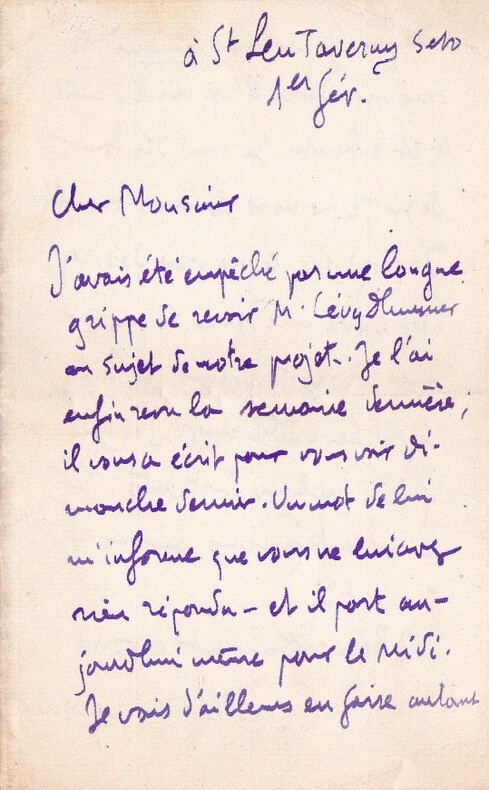 à St Leu Taverny Seto
1er Fév.
Cher Monsieur
J'avais été empêché par une longue
grippe de revoir M. Lévy Dhurmer
au sujet de notre projet. Je l'ai
enfin revu la semaine dernière ;
il vous a écrit pour vous voir di-
manche dernier. Un mot de lui
m'informe que vous ne lui avez
rien répondu – et il part au-
jourd'hui même pour le Midi.
Je vais d'ailleurs en faire autant